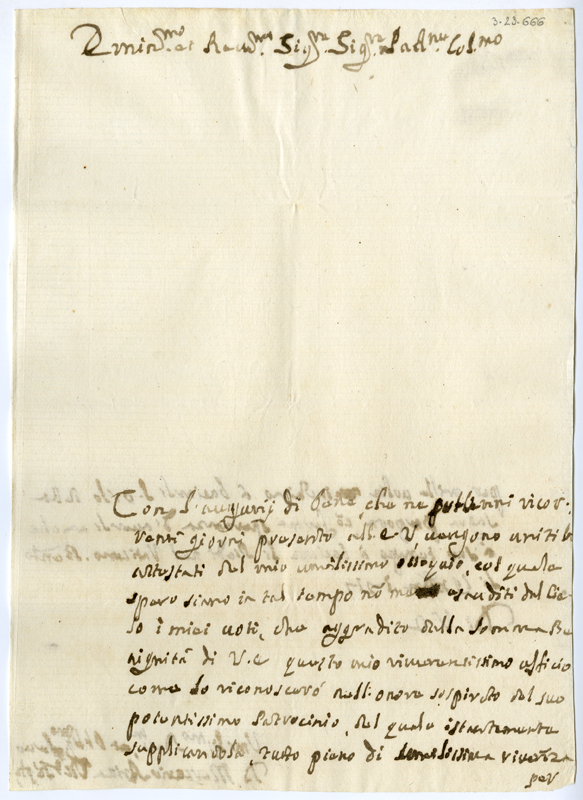 3-23-666
Emin.mo et Reud.mo Sig.re Sig.re Padne Col.mo
Con l'augurij di bene, che ne sollenni ricor:
renti giorni presento all'e V. uengono uniti li
attestati del mio umilissimo ossequio, col quale
spero siano in tal tempo nõ meno esauditi dal Cie-
lo i miei uoti, che aggradito dalla somma Be
nignità di V.e questo mio riuerentissimo officio
come lo riconoscerò nell'onore sospirato del suo
potentissimo Patrocinio, del quale istantemente
supplicandola, tutto pieno di umilissima riuerenza
per